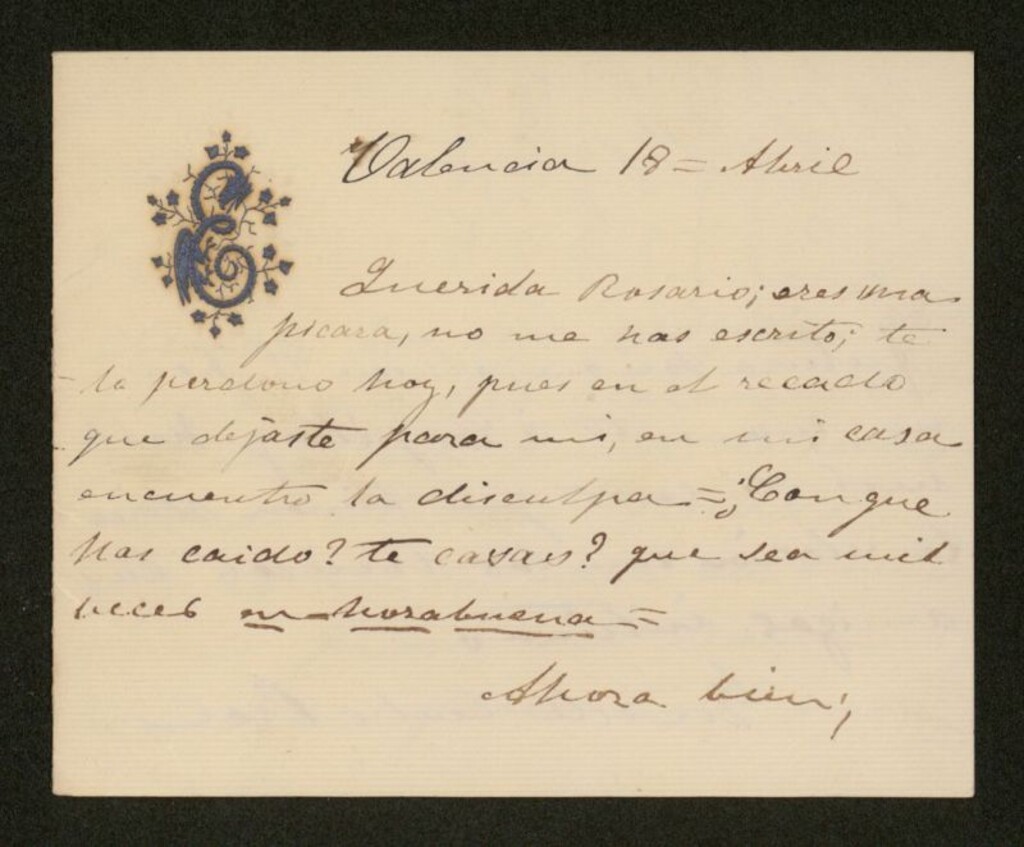 E
Valencia 18 = Abril
Querida Rosario; eres una
picara, no me has escrito; te
lo perdono hoy, pues en el recado
que dejaste para mi, en mi casa
encuentro la disculpa = ¿Con que
has caido? te casas? que sea mil
veces en-horabuena =
Ahora bien;